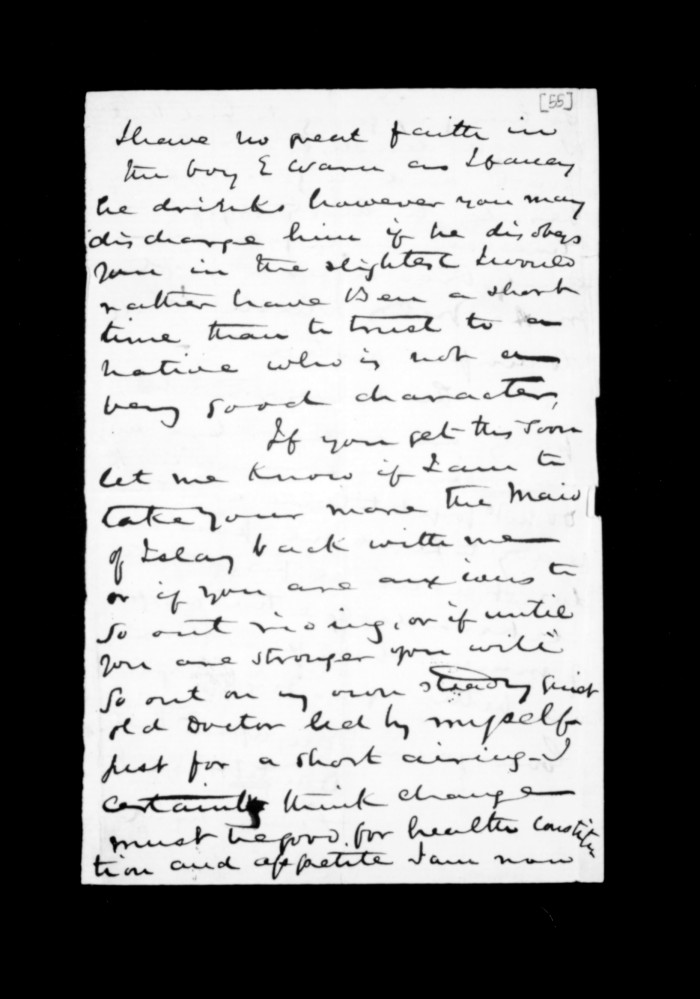 [55]
I have no great faith in
the boy Ewaru as I fancy
he drinks however you may
discharge him if he disobeys
you in the slightest I would
rather have Ben a short
time than to trust to a
native who is not a
very good character,
If you get this soon
let me know if I am to
take your mare the Maid
of Islay back with me
or if you are anxious to
go out riding, or if until
you are stronger you will
go out on my own steady quiet
old Doctor led by myself
just for a short airing - I
certainly think change
must be good for health constitu
tion and appetite I am now